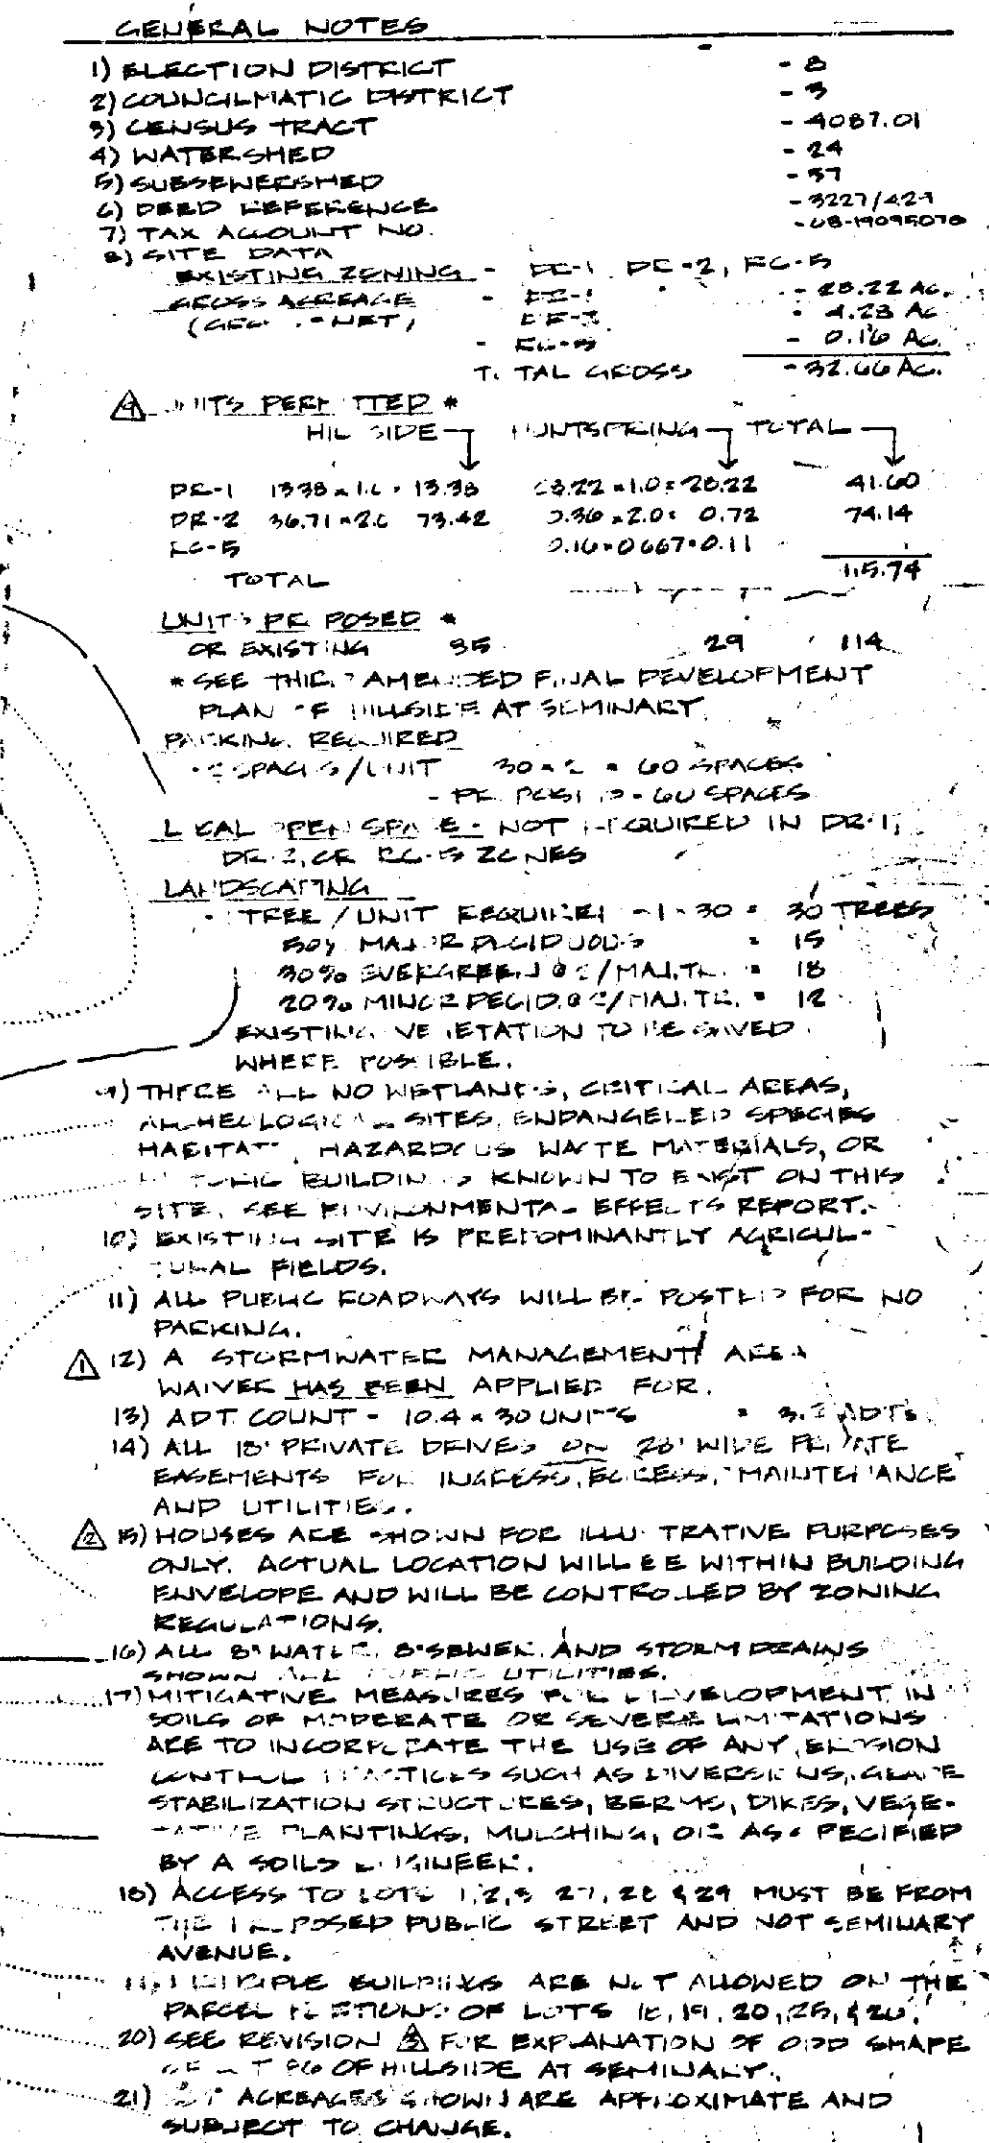 GENERAL NOTES
1) ELECTION DISTRICT - 8
2) COUNCILMATIC DISTRICT - 3
3) CENSUS TRACT - 4087.01
4) WATERSHED - 24
5) SUBSEWERSHED - 37
6) DEED REFERENCE - 3227/429
7) TAX ACCOUNT NO.
8) SITE DATA
EXISTING ZONING - DR-1, DR-2, RC-5
GROSS ACREAGE - DR-1 - 28.22 AC.
= NET) - 4.28 AC.
- RC-5 - 0.16 AC.
TOTAL GROSS - 32.66 AC.
4 UNITS PERMITTED *
HILLSIDE HUNTSPRING TOTAL
DR-1 13.38 x 1.0 = 13.38 28.22 x 1.0 = 28.22 41.60
DR-2 36.71 x 2.0 73.42 0.36 x 2.0 = 0.72 74.14
RC-5 0.16 x 0.667 = 0.11
TOTAL 115.74
UNITS PROPOSED *
OR EXISTING 85 29 114
* SEE THIRD AMENDED FINAL DEVELOPMENT
PLAN OF HILLSIDE AT SEMINARY.
PARKING REQUIRED
- 2 SPACES/UNIT 30 x 2 = 60 SPACES
- PROPOSED - 60 SPACES
LOCAL OPEN SPACE - NOT REQUIRED IN DR-1,
DR-2, OR RC-5 ZONES
LANDSCAPING
TREE / UNIT REQUIRED - 1 x 30 = 30 TREES
50% MAJOR DECIDUOUS = 15
30% EVERGREEN @ 2/MAJ. TR. = 18
20% MINOR DECID. @ 2/MAJ. TR. = 12
EXISTING VEGETATION TO BE SAVED
WHERE POSSIBLE.
9) THERE ARE NO WETLANDS, CRITICAL AREAS,
ARCHEOLOGICAL SITES, ENDANGERED SPECIES
HABITAT, HAZARDOUS WASTE MATERIALS, OR
HISTORIC BUILDINGS KNOWN TO EXIST ON THIS
SITE. SEE ENVIRONMENTAL EFFECTS REPORT.
10) EXISTING SITE IS PREDOMINANTLY AGRICUL-
TURAL FIELDS.
11) ALL PUBLIC ROADWAYS WILL BE POSTED FOR NO
PARKING.
1 12) A STORMWATER MANAGEMENT AREA
WAIVER HAS BEEN APPLIED FOR.
13) ADT COUNT - 10.4 x 30 UNITS = ADT'S
14) ALL 18' PRIVATE DRIVES ON 28' WIDE PRIVATE
EASEMENTS FOR INGRESS, EGRESS, MAINTENANCE
AND UTILITIES.
2 15) HOUSES ARE SHOWN FOR ILLUSTRATIVE PURPOSES
ONLY. ACTUAL LOCATION WILL BE WITHIN BUILDING
ENVELOPE AND WILL BE CONTROLLED BY ZONING
REGULATIONS.
16) ALL 8" WATER, 8" SEWER, AND STORM DRAINS
SHOWN ARE PUBLIC UTILITIES.
17) MITIGATIVE MEASURES FOR DEVELOPMENT IN
SOILS OF MODERATE OR SEVERE LIMITATIONS
ARE TO INCORPORATE THE USE OF ANY EROSION
CONTROL PRACTICES SUCH AS DIVERSIONS, GRADE
STABILIZATION STRUCTURES, BERMS, DIKES, VEGE-
TATIVE PLANTINGS, MULCHING, OR AS SPECIFIED
BY A SOILS ENGINEER.
18) ACCESS TO LOTS 1, 2, 3 27, 28 & 29 MUST BE FROM
THE PROPOSED PUBLIC STREET AND NOT SEMINARY
AVENUE.
19) PRINCIPLE BUILDINGS ARE NOT ALLOWED ON THE
PARCEL PORTIONS OF LOTS 18, 19, 20, 25, & 26.
20) SEE REVISION 3 FOR EXPLANATION OF ODD SHAPE
OF LOT 86 OF HILLSIDE AT SEMINARY.
21) LOT ACREAGES SHOWN ARE APPROXIMATE AND
SUBJECT TO CHANGE.